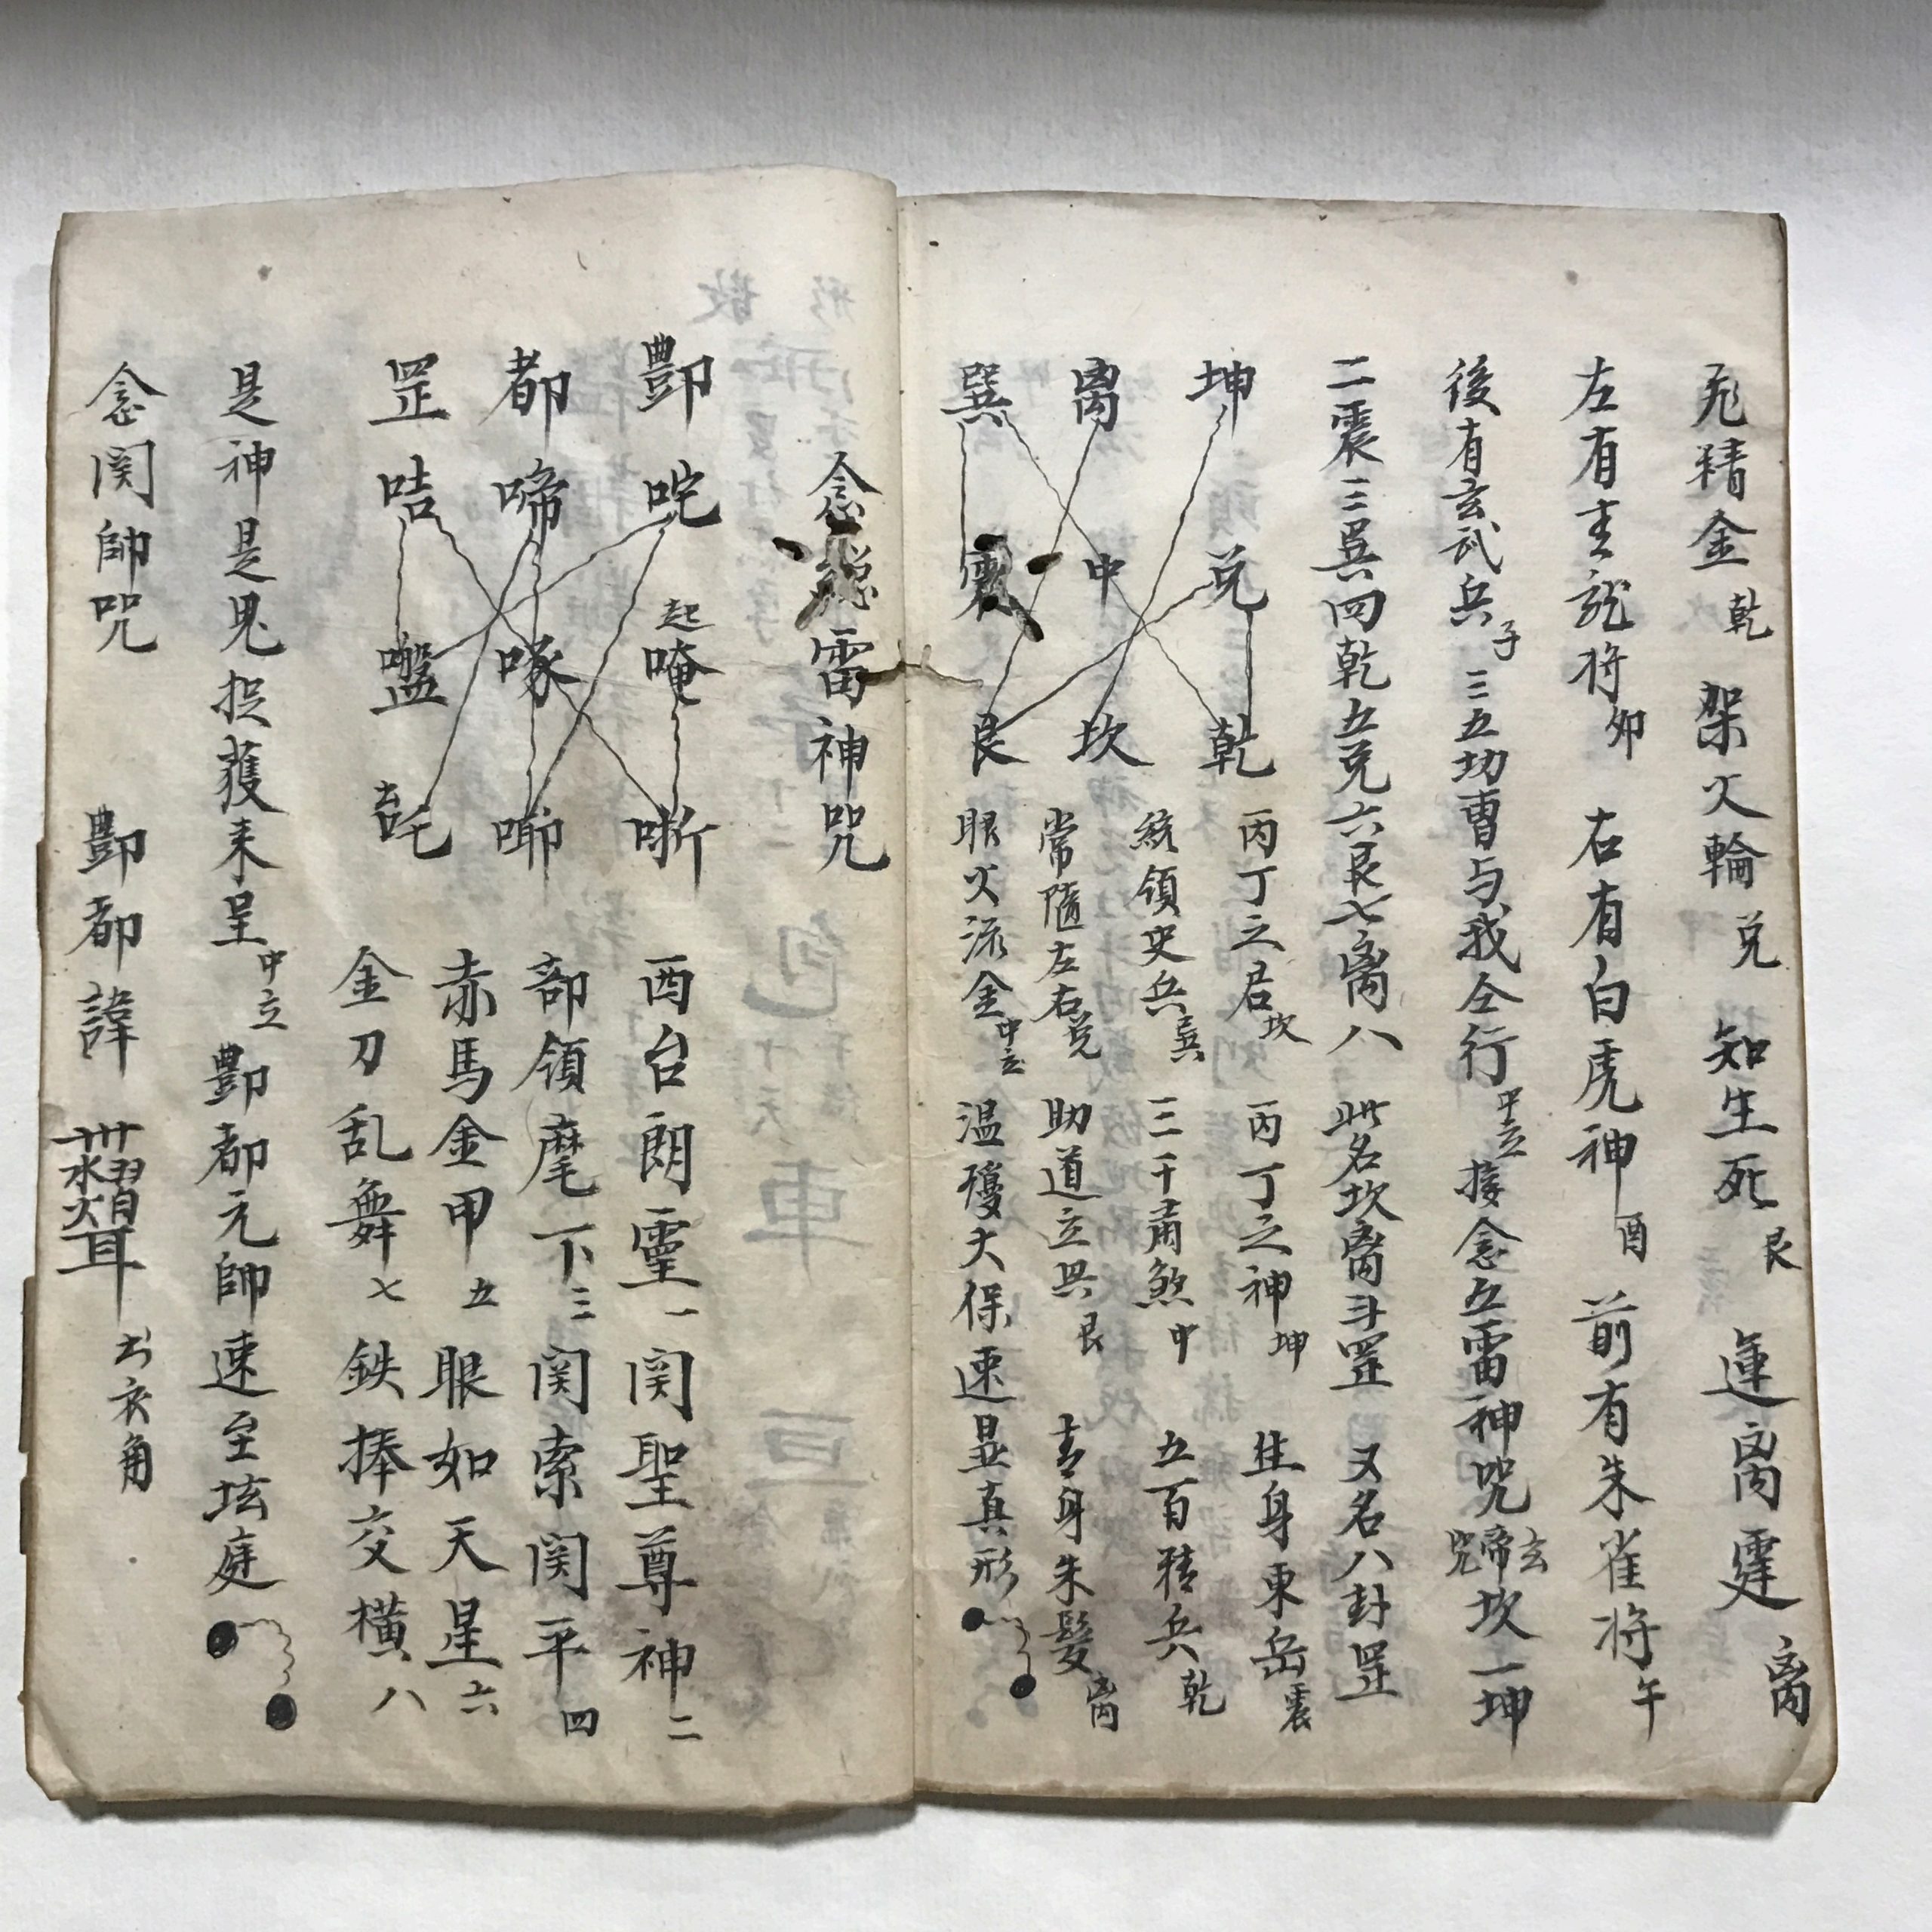 飛精金乾 架火輪兑 知生死艮 運离霆 离
左有青龍将卯 右有白虎神酉 前有朱雀将午
後有玄武兵子 三五切曹与我仝行中立 接念五雷神咒玄帝咒坎一坤
二震三巽四乾五兑六艮七离八 此名坎离斗罡 又名八卦罡
坤 兑 乾 丙丁之君坎 丙丁之神坤 住身東岳震
离 中 坎 統領吏兵巽 三千甫煞中 五百猜兵乾
巽 震 艮 常隨左右兑 助道立兵艮 青身朱髮离
眼火流金中立 温瓊大保速显真形
念 雷神咒
酆 咤 起唵 哳 酉台朗靈一 関聖尊神二
都 啼 啄 啣 部領麾下三 関索関平四
赤馬金甲五 眼如天星六
罡 咭 吒 金刀乱舞七 鉄捧交横八
是神是鬼捉獲来呈中立 酆都元帥速至坛庭
念関帥咒 酆都諱 衣角